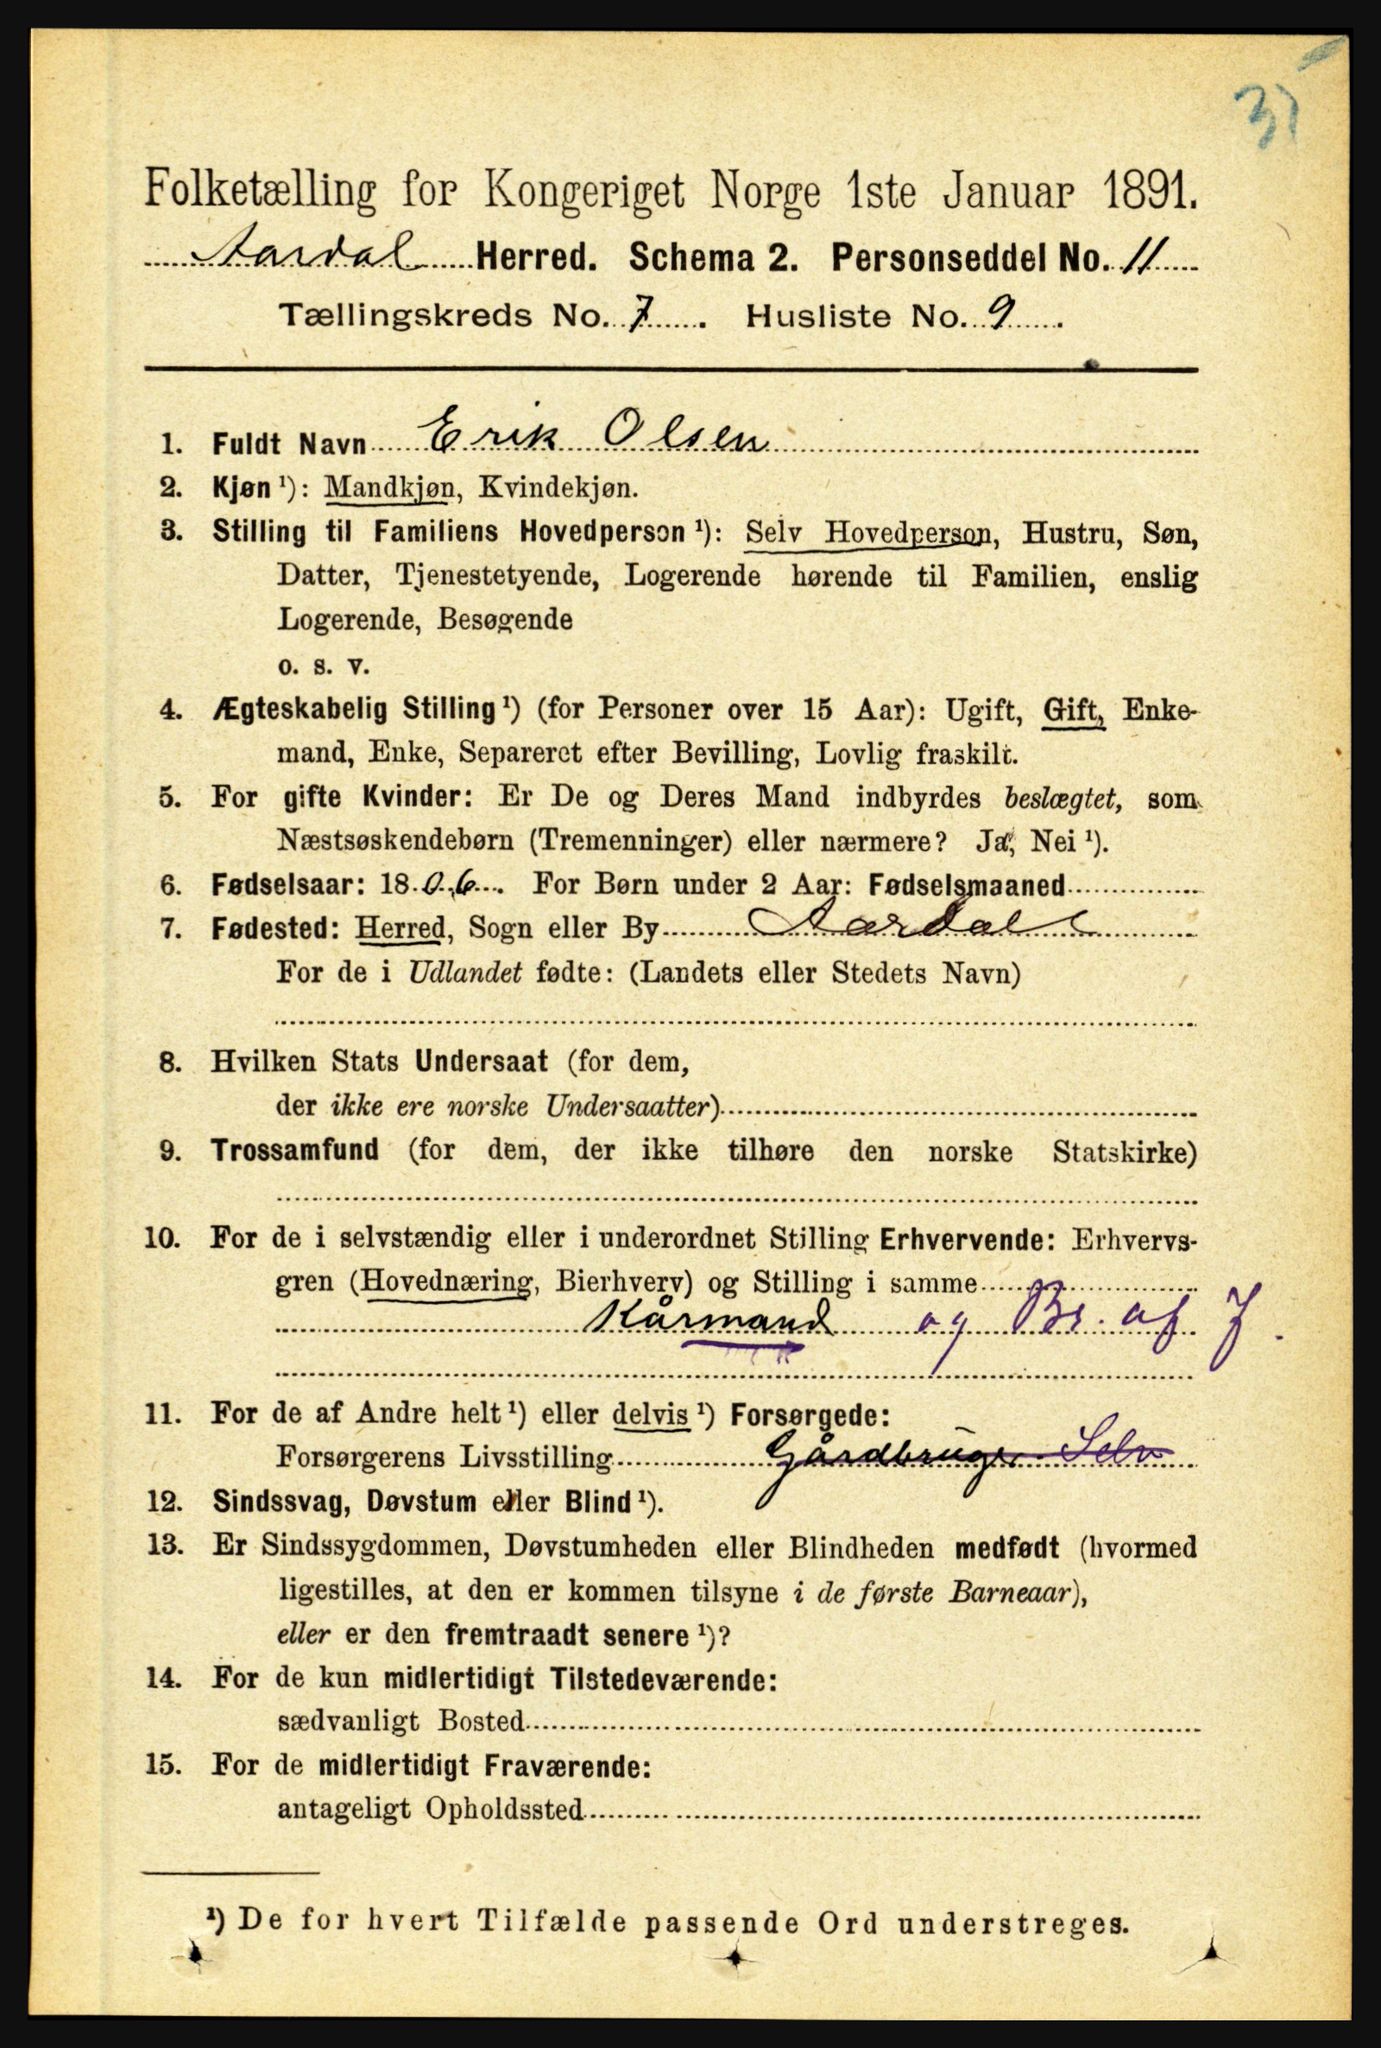 Folketælling for Kongeriget Norge 1ste Januar 1891.
Aardal Herred. Schema 2. Personseddel No. 11
Tællingskreds No. 7. Husliste No. 9.
1. Fuldt Navn Erik Olsen
2. Kjøn ¹): Mandkjøn, Kvindekjøn.
3. Stilling til Familiens Hovedperson ¹): Selv Hovedperson, Hustru, Søn,
Datter, Tjenestetyende, Logerende hørende til Familien, enslig
Logerende, Besøgende
o. s. v.
4. Ægteskabelig Stilling ¹) (for Personer over 15 Aar): Ugift, Gift, Enke-
mand, Enke, Separeret efter Bevilling, Lovlig fraskilt.
5. For gifte Kvinder: Er De og Deres Mand indbyrdes beslægtet, som
Næstsøskendebørn (Tremenninger) eller nærmere? Ja, Nei ¹).
6. Fødselsaar: 1806. For Børn under 2 Aar: Fødselsmaaned
7. Fødested: Herred, Sogn eller By Aardal
For de i Udlandet fødte: (Landets eller Stedets Navn)
8. Hvilken Stats Undersaat (for dem,
der ikke ere norske Undersaatter)
9. Trossamfund (for dem, der ikke tilhøre den norske Statskirke)
10. For de i selvstændig eller i underordnet Stilling Erhvervende: Erhvervs-
gren (Hovednæring, Bierhverv) og Stilling i samme
Kårmand og Br. af J.
11. For de af Andre helt ¹) eller delvis ¹) Forsørgede:
Forsørgerens Livsstilling Gårdbruger Selv
12. Sindssvag, Døvstum eller Blind ¹).
13. Er Sindssygdommen, Døvstumheden eller Blindheden medfødt (hvormed
ligestilles, at den er kommen tilsyne i de første Barneaar),
eller er den fremtraadt senere ¹)?
14. For de kun midlertidigt Tilstedeværende:
sædvanligt Bosted
15. For de midlertidigt Fraværende:
antageligt Opholdssted
¹) De for hvert Tilfælde passende Ord understreges.